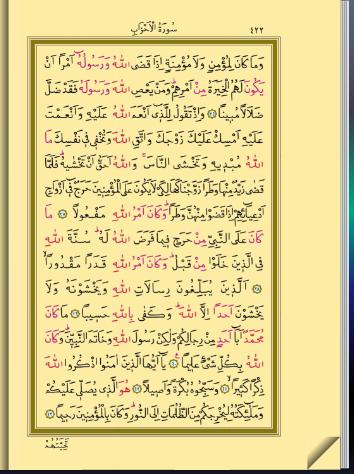 سُورَةُ الْاَحْزَابِ ٤٢٢
وَمَا كَانَ لِمُؤْمِنٍ وَلَا مُؤْمِنَةٍ اِذَا قَضَى اللّٰهُ وَرَسُولُهُٓ اَمْرًا اَنْ
يَكُونَ لَهُمُ الْخِيَرَةُ مِنْ اَمْرِهِمْۜ وَمَنْ يَعْصِ اللّٰهَ وَرَسُولَهُ فَقَدْ ضَلَّ
ضَلَالًا مُبِينًا ﴿٣٦﴾ وَاِذْ تَقُولُ لِلَّذِٓي اَنْعَمَ اللّٰهُ عَلَيْهِ وَاَنْعَمْتَ
عَلَيْهِ اَمْسِكْ عَلَيْكَ زَوْجَكَ وَاتَّقِ اللّٰهَ وَتُخْفِي فِي نَفْسِكَ مَا
اللّٰهُ مُبْدِيهِ وَتَخْشَى النَّاسَۚ وَاللّٰهُ اَحَقُّ اَنْ تَخْشٰيهُۜ فَلَمَّا
قَضٰى زَيْدٌ مِنْهَا وَطَرًا زَوَّجْنَاكَهَا لِكَيْ لَا يَكُونَ عَلَى الْمُؤْمِنِينَ حَرَجٌ فِٓي اَزْوَاجِ
اَدْعِيَٓائِهِمْ اِذَا قَضَوْا مِنْهُنَّ وَطَرًاۜ وَكَانَ اَمْرُ اللّٰهِ مَفْعُولًا ﴿٣٧﴾ مَا
كَانَ عَلَى النَّبِيِّ مِنْ حَرَجٍ فِيمَا فَرَضَ اللّٰهُ لَهُۜ سُنَّةَ اللّٰهِ
فِي الَّذِينَ خَلَوْا مِنْ قَبْلُۜ وَكَانَ اَمْرُ اللّٰهِ قَدَرًا مَقْدُورًا
﴿٣٨﴾ اَلَّذِينَ يُبَلِّغُونَ رِسَالَاتِ اللّٰهِ وَيَخْشَوْنَهُ وَلَا
يَخْشَوْنَ اَحَدًا اِلَّا اللّٰهَۜ وَكَفٰى بِاللّٰهِ حَسِيبًا ﴿٣٩﴾ مَا كَانَ
مُحَمَّدٌ اَبَٓا اَحَدٍ مِنْ رِجَالِكُمْ وَلٰكِنْ رَسُولَ اللّٰهِ وَخَاتَمَ النَّبِيّ۪نَۜ وَكَانَ
اللّٰهُ بِكُلِّ شَيْءٍ عَلِيمًا ﴿٤٠﴾ يَٓا اَيُّهَا الَّذِينَ اٰمَنُوا اذْكُرُوا اللّٰهَ
ذِكْرًا كَثِيرًا ﴿٤١﴾ وَسَبِّحُوهُ بُكْرَةً وَاَصِيلًا ﴿٤٢﴾ هُوَ الَّذِي يُصَلِّي عَلَيْكُمْ
وَمَلٰٓئِكَتُهُ لِيُخْرِجَكُمْ مِنَ الظُّلُمَاتِ اِلَى النُّورِۜ وَكَانَ بِالْمُؤْمِنِينَ رَحِيمًا ﴿٤٣﴾
تَحِيَّتُهُمْ